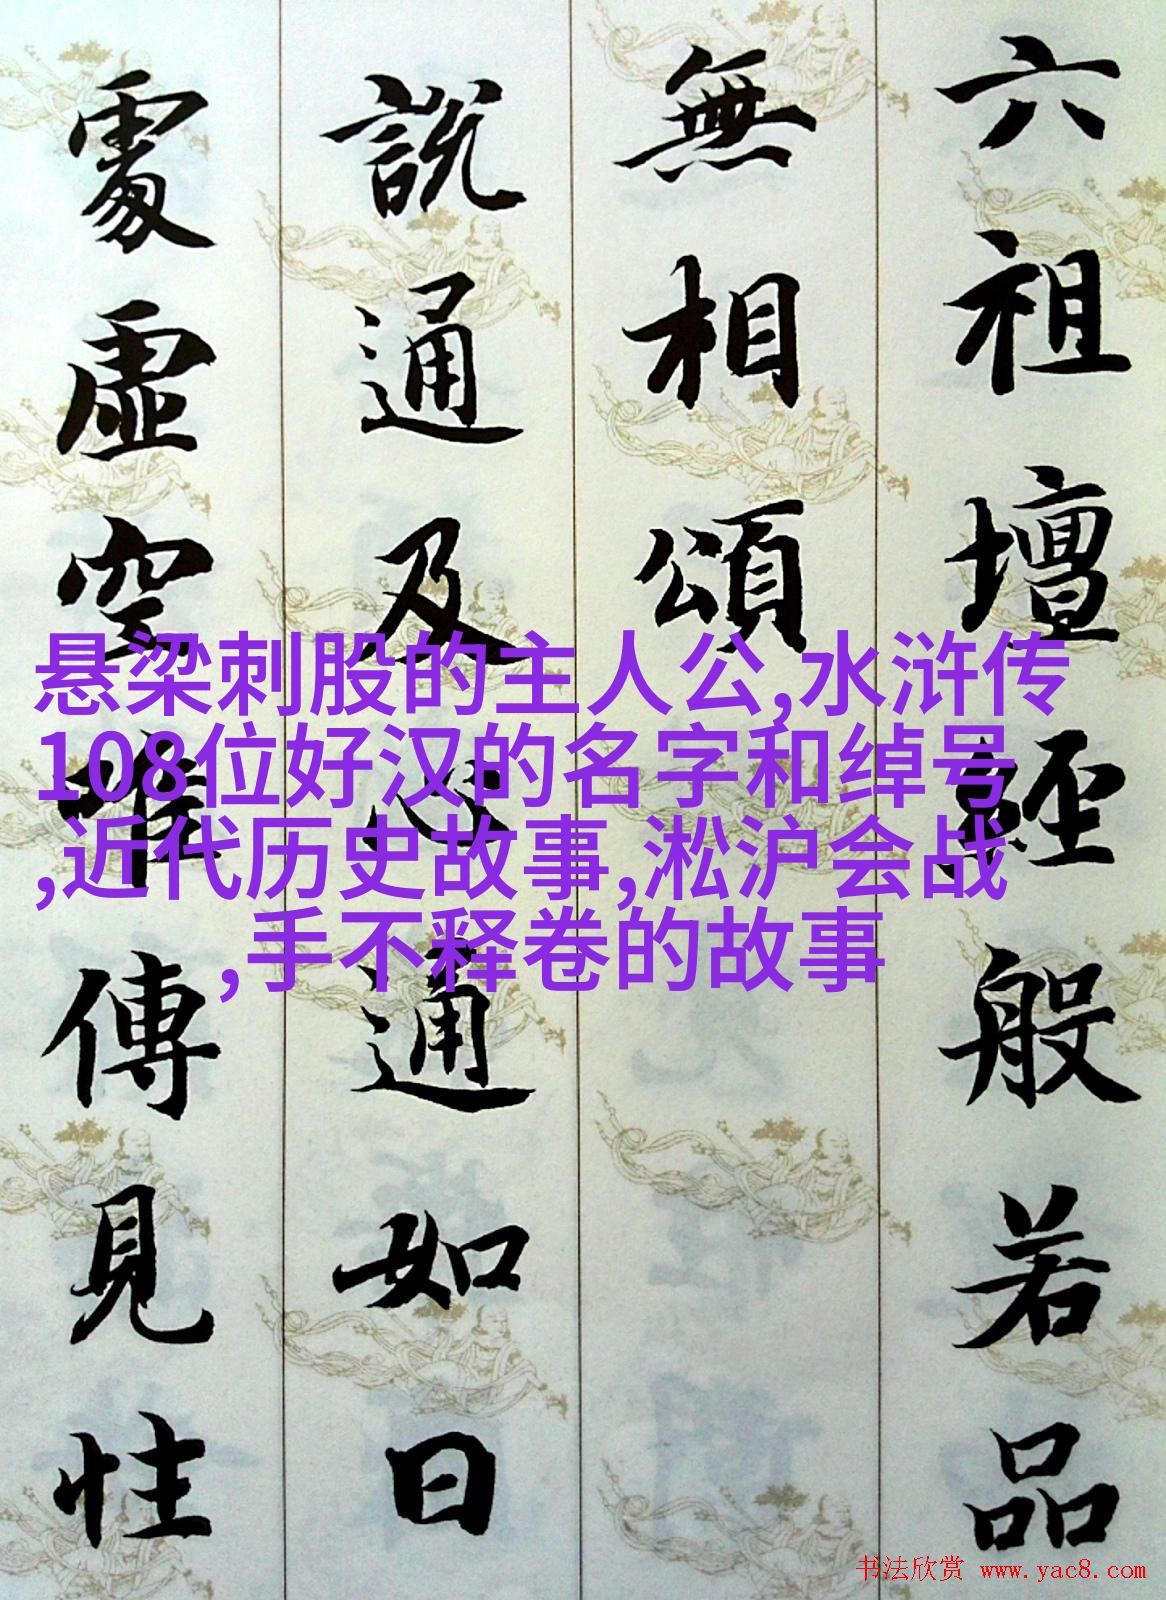 六祖壇經般若品
無相頌
說通及心通如日
處虛空唯傳見性
悬梁刺股的主人公,水浒传
108位好汉的名字和绰号
,近代历史故事,淞沪会战
,手不释卷的故事
书法欣赏 www.yac8.com